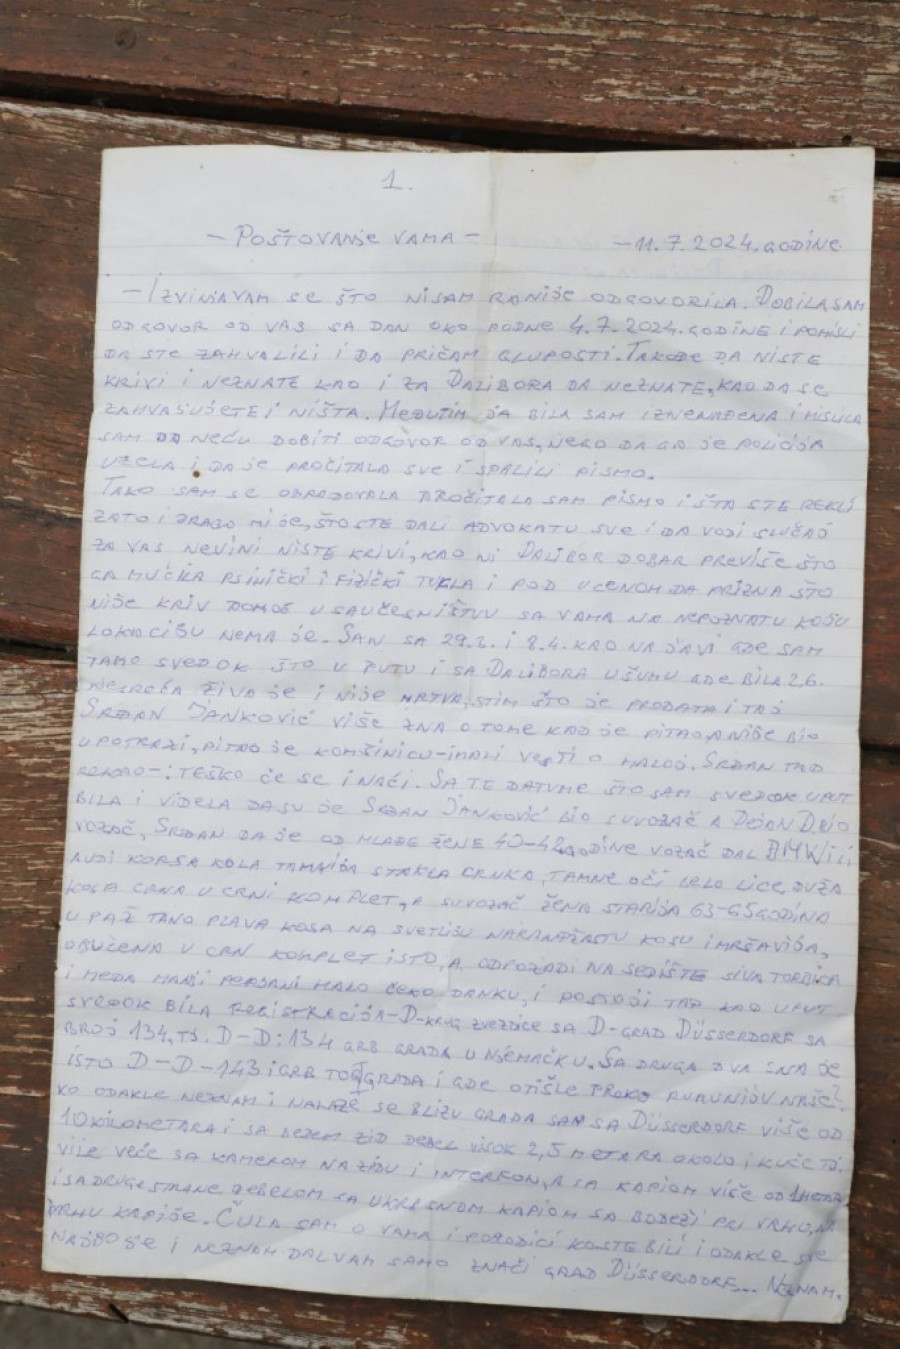 1.
- POŠTOVANJE VAMA - - 11.7.2024. GODINE.
- IZVINJAVAM SE ŠTO NISAM RANIJE ODGOVORILA. DOBILA SAM
ODGOVOR OD VAS SA DAN OKO PODNE 4.7.2024. GODINE I POMISLI
DA STE ZAHVALILI I DA PRIČAM GLUPOSTI. TAKOĐE DA NISTE
KRIVI I NEZNATE KAO I ZA DALIBORA DA NEZNATE, KAO DA SE
ZAHVALJUJETE I NIŠTA. MEĐUTIM JA BILA SAM IZNENAĐENA I MISLILA
SAM DA NEĆU DOBITI ODGOVOR OD VAS, NEGO DA GA JE POLICIJA
UZELA I DA JE PROČITALA SVE I SPALILI PISMO.
TAKO SAM SE OBRADOVALA PROČITALA SAM PISMO I ŠTA STE REKLI
ZATO I DRAGO MI JE, ŠTO STE DALI ADVOKATU SVE I DA VODI SLUČAJ
ZA VAS NEVINI NISTE KRIVI, KAO NI DALIBOR DOBAR PREVIŠE ŠTO
GA MUČILA PSIHIČKI I FIZIČKI TUKLA I POD UCENOM DA PRIZNA ŠTO
NIJE KRIV U SAUČESNIŠTVU SA VAMA NA NEPOZNATU KOJU
LOKACIJU NEMA JE. SAN SA 29.2. I 8.4. KAO NA JAVI GDE SAM
TAMO SVEDOK ŠTO U PUTU I SA DALIBORA U ŠUMU GDE BILA 26.
NESREĆA ŽIVA JE I NIJE MRTVA, STIM ŠTO JE PRODATA I TAJ
SRĐAN JANKOVIĆ VIŠE ZNA O TOME KAD JE PITAO A NIJE BIO
U POTRAZI, PITAO JE KOMŠINICU - IMALI VESTI O MALOJ. SRĐAN TAD
REKAO -: TEŠKO ĆE SE I NAĆI. SA TE DATUME ŠTO SAM SVEDOK UPUT
BILA I VIDELA DA SU JE SRĐAN JANKOVIĆ BIO SUVOZAČ A DEJAN D. BIO
VOZAČ, SRĐAN DA JE OD MLAĐE ŽENE 40-42 GODINE VOZAČ DAL BMW ILI
AUDI KORSA KOLA TAMNIJA STAKLA CRNKA, TAMNE OČI CELO LICE, DUŽA
KOSA CRNA U CRNI KOMPLET, A SUVOZAČ ŽENA STARIJA 63-65 GODINA
U PAŽ TANO PLAVA KOSA NA SVETLIJU NARANDŽASTU KOSU I MRŠAVIJA,
OBUČENA U CRN KOMPLET ISTO, A ODPOZADI NA SEDIŠTE SIVA TORBICA
I MEDA MANJI MALO ČEKO DANKU, I POSTOJI TAD KAO UPUT
SVEDOK BILA REGISTRACIJA - D - KRUG ZVEZDICE SA D - GRAD DÜSSERDORF SA
BROJ 134, TJ. D - D : 134 GRB GRADA U NJEMAČKU. SA DRUGA DVA SNA JE
ISTO D - D - 143 I GRB TOG GRADA I GDE OTIŠLE PREKO
KO ODAKLE NEZNAM I NALAZE SE BLIZU GRADA SAM SA DÜSSERDORF VIŠE OD
10 KILOMETARA I SA BEŽEM ZID DEBEL VISOK 2,5 METARA OKOLO, I KUĆE TJ.
VILE VEĆE SA KAMEROM NA ZIDU I INTERFON, A SA KAPIOM VIŠE OD 1 METAR
I SA DRUGE STRANE DEBELOM SA UKRASNOM KAPIOM SA BODEŽI PRI VRHU, NA
VRHU KAPIJE. ČULA SAM O VAMA I PORODICI KO STE BILI I ODAKLE STE
NAJBOLJE I NEZNAM DAL VAM SAMO ZNAČI GRAD DÜSSERDORF... NEZNAM.